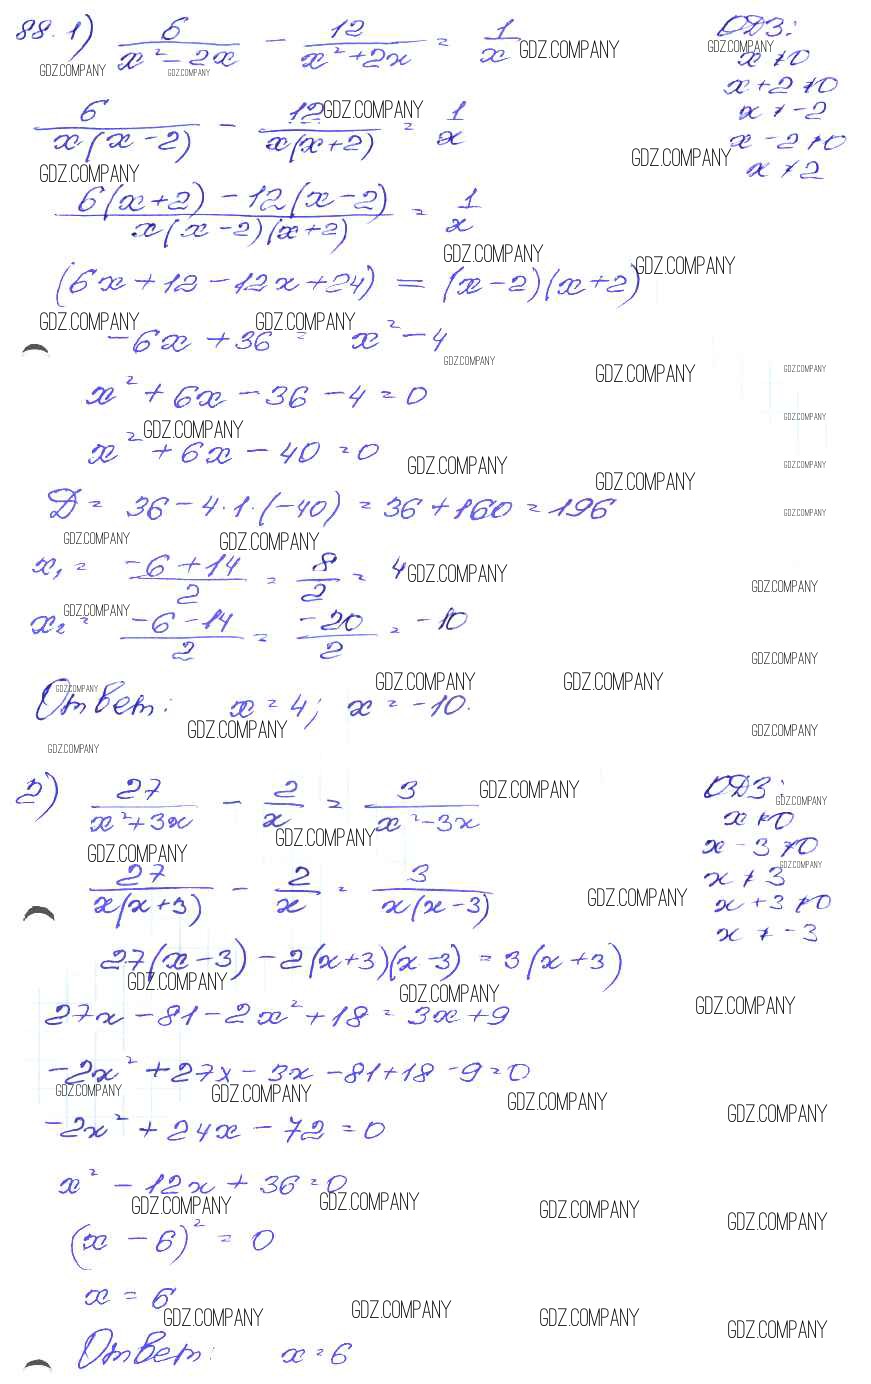 88. 1) 6/(x² − 2x) − 12/(x² + 2x) = 1/x ОДЗ:
x ≠ 0
6/(x(x − 2)) − 12/(x(x + 2)) = 1/x x + 2 ≠ 0
x ≠ −2
x − 2 ≠ 0
x ≠ 2
(6(x + 2) − 12(x − 2))/(x(x − 2)(x + 2)) = 1/x
(6x + 12 − 12x + 24) = (x − 2)(x + 2)
−6x + 36 = x² − 4
x² + 6x − 36 − 4 = 0
x² + 6x − 40 = 0
D = 36 − 4·1·(−40) = 36 + 160 = 196
x₁ = (−6 + 14)/2 = 8/2 = 4
x₂ = (−6 − 14)/2 = −20/2 = −10
Ответ: x = 4; x = −10.
2) 27/(x² + 3x) − 2/x = 3/(x² − 3x) ОДЗ:
x ≠ 0
x − 3 ≠ 0
27/(x(x + 3)) − 2/x = 3/(x(x − 3)) x ≠ 3
x + 3 ≠ 0
x ≠ −3
27(x − 3) − 2(x + 3)(x − 3) = 3(x + 3)
27x − 81 − 2x² + 18 = 3x + 9
−2x² + 27x − 3x − 81 + 18 − 9 = 0
−2x² + 24x − 72 = 0
x² − 12x + 36 = 0
(x − 6)² = 0
x = 6
Ответ: x = 6
GDZ.COMPANY